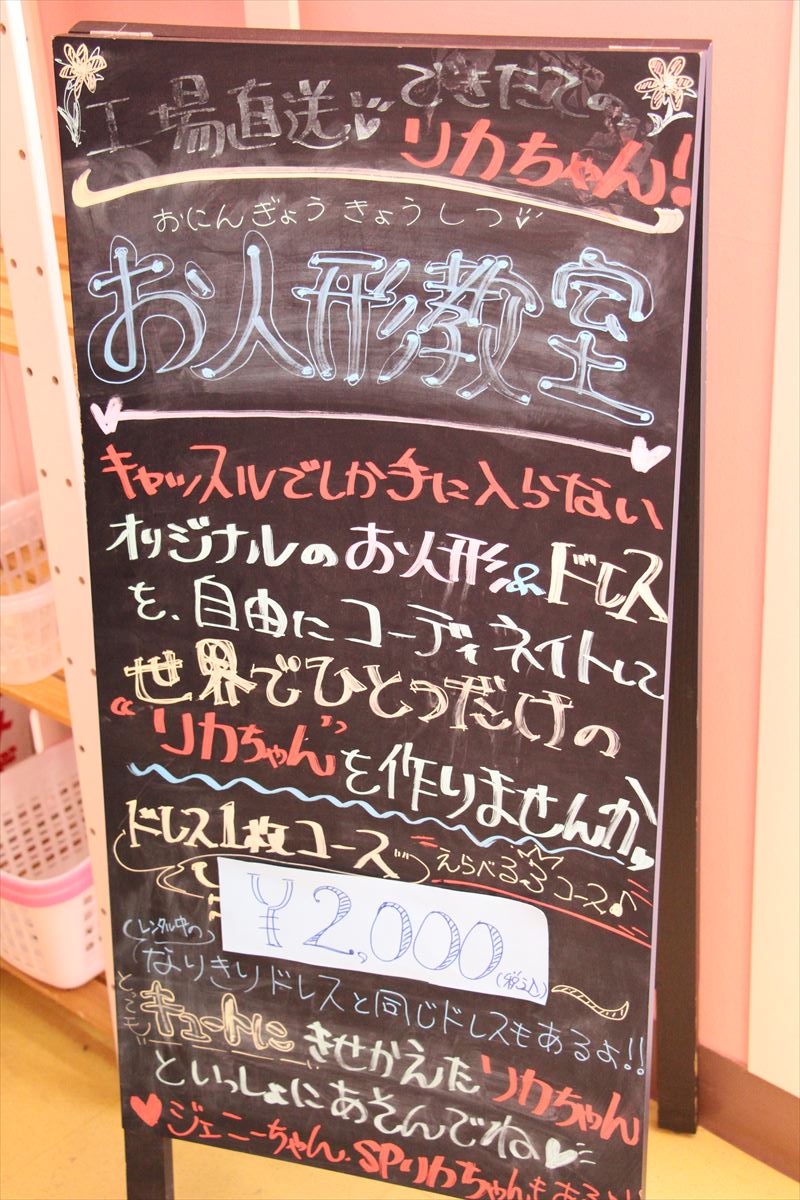 工場直送 できたての
リカちゃん!
おにんぎょうきょうしつ
お人形教室
キャッスルでしか手に入らない
オリジナルのお人形&ドレス
を、自由にコーディネイトして
世界でひとつだけの
“リカちゃん”を作りませんか
ドレス1枚コース えらべる3コース♪
¥2,000(税込)
レンタル中の
なりきりドレスと同じドレスもあるよ!!
とってもキュートにきせかえたリカちゃん
といっしょにあそんでね♥
♥ジェニーちゃん、SPリカちゃんもある